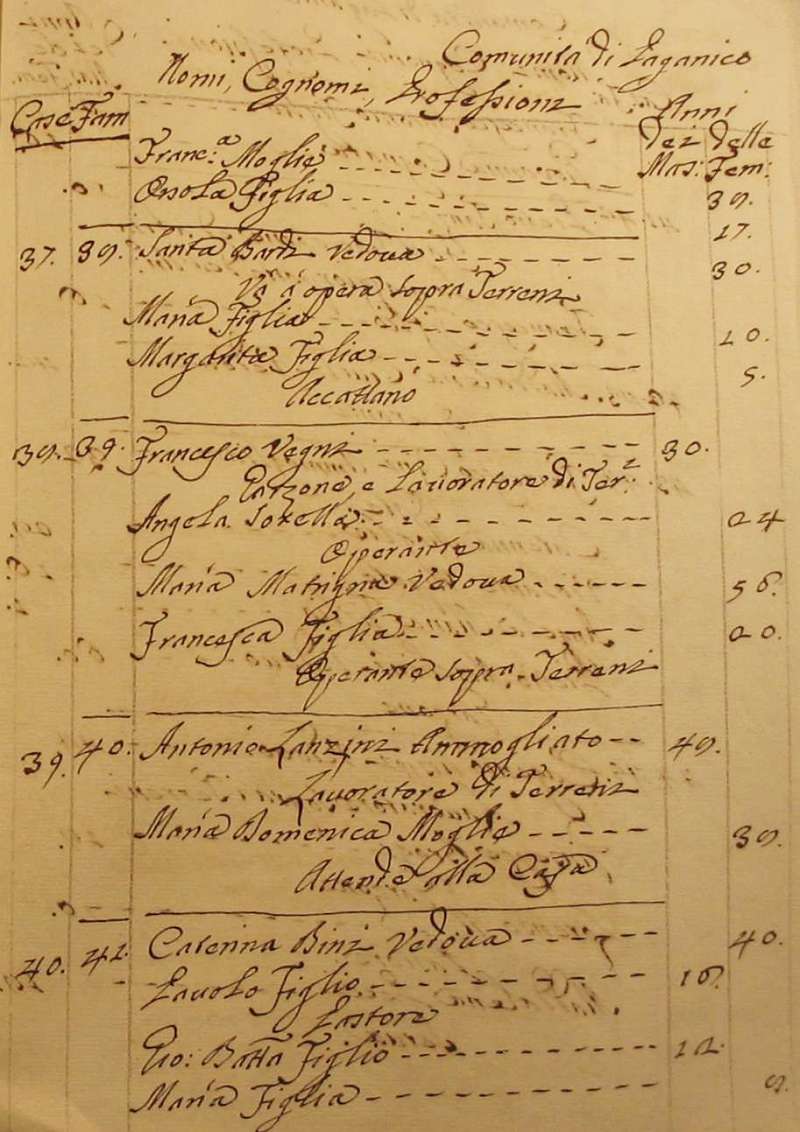 Comunità di Paganico
Nomi, Cognomi, Professioni
Anni
Case Fam:
dei delle
Mas: Fem:
Franc:ª Moglie 38.
Orsola Figlia 17.
37. 38. Santa Bardi Vedova 30.
Va a opera sopra Terreni
Maria Figlia 10.
Margarita Figlia 5.
Accattano
38. 39. Francesco Vegni 30.
Garzone, e Lavoratore di Ter:i
Angela Sorella 24
Operante
Maria Matrigna Vedova 56.
Francesca Figlia 20.
Operante sopra Terreni
39. 40. Antonio Lanzini Ammogliato 48.
Lavoratore di Terreni
Maria Domenica Moglie 38.
Attende alla Casa
40. 41. Caterina Bini Vedova 40.
Pavolo Figlio 16.
Pastore
Gio: Batta Figlio 12.
Maria Figlia 8.